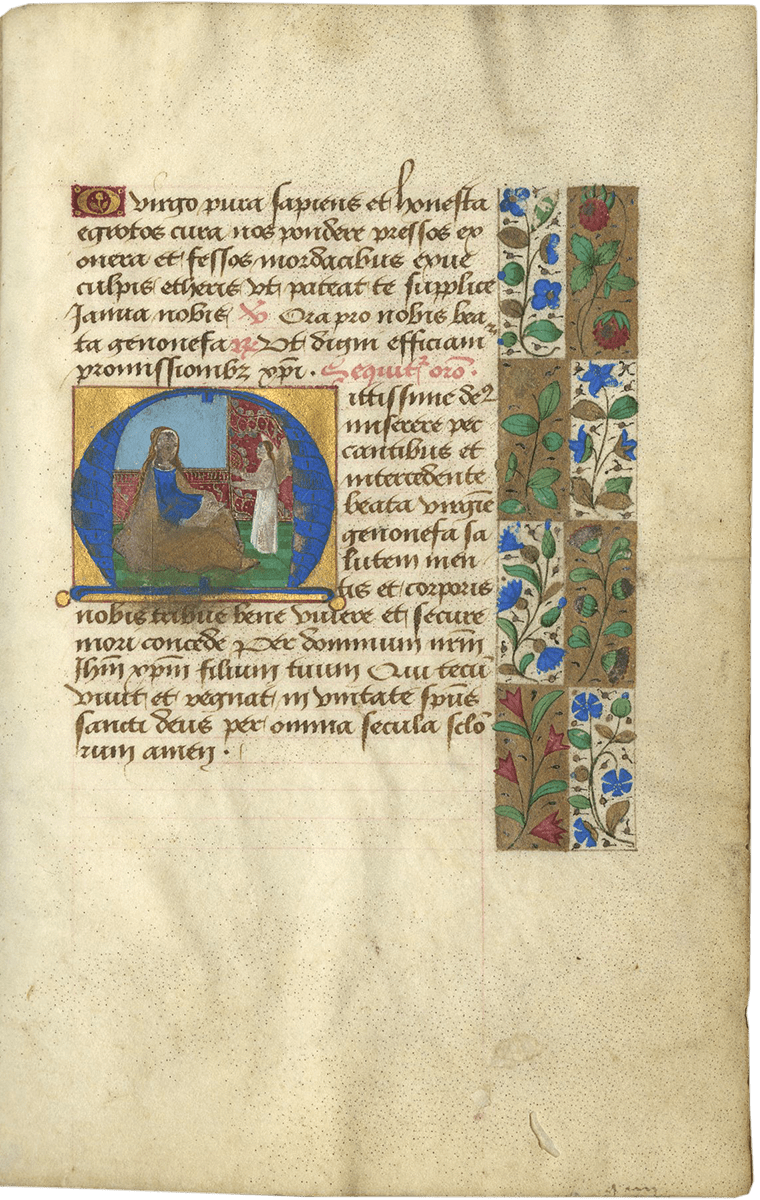 O virgo pura sapiens et honesta
egrotos cura nos pondere pressos ex
onera et fessos mordacibus exue
culpis etheris vt pateat te supplice
Janua nobis V Ora pro nobis bea
ta genonefa R Vt digni efficiam
promissionibz xpi · Sequit oro ·
Mittissime de9
miserere pec
cantibus et
intercedente
beata virgīe
genonefa sa
lutem men
tis et corporis
nobis tribue bene viuere et secure
mori concede Per dominum nrm̄
Jhm̄ xpm̄ filium tuum Qui tecū
viuit et regnat in vnitate spūs
sancti deus per omnia secula sclō
rum amen ·